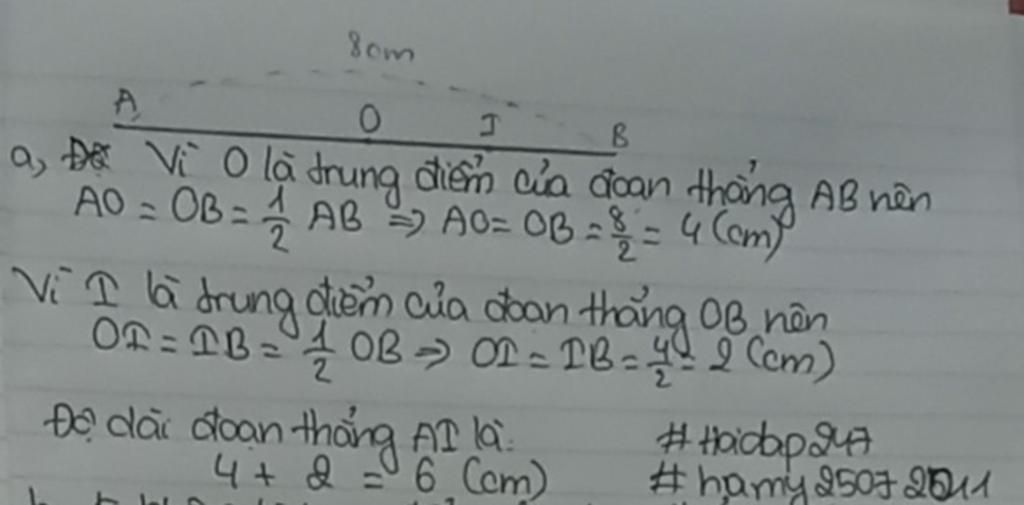 8cm
A O I B
a, Vì O là trung điểm của đoan thẳng AB nên
AO = OB = 1/2 AB => AO = OB = 8/2 = 4 (cm)
Vì I là trung điểm của đoan thẳng OB nên
OI = IB = 1/2 OB => OI = IB = 4/2 = 2 (cm)
Độ dài đoan thẳng AI là:
#Hoidap247
4 + 2 = 6 (cm)